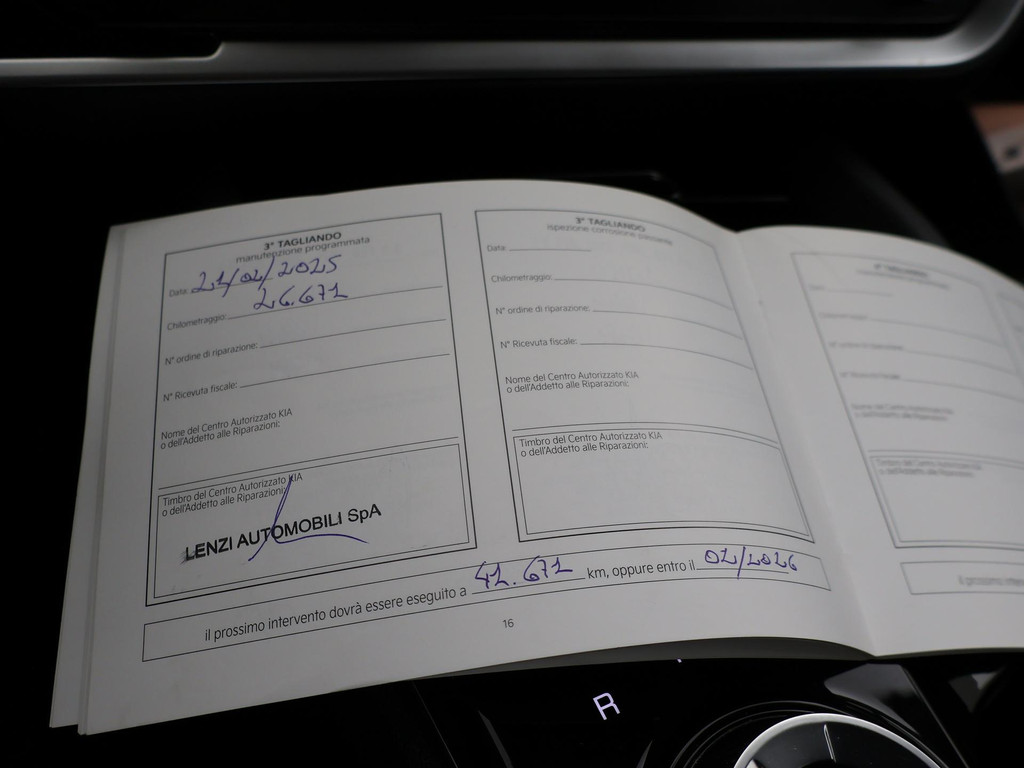 3° TAGLIANDO
manutenzione programmata
Data: 21/02/2025
Chilometraggio: 26.671
N° ordine di riparazione:
N° Ricevuta fiscale:
Nome del Centro Autorizzato KIA
o dell'Addetto alle Riparazioni:
Timbro del Centro Autorizzato KIA
o dell'Addetto alle Riparazioni:
LENZI AUTOMOBILI SpA
3° TAGLIANDO
ispezione corrosione passante
Data:
Chilometraggio:
N° ordine di riparazione:
N° Ricevuta fiscale:
Nome del Centro Autorizzato KIA
o dell'Addetto alle Riparazioni:
Timbro del Centro Autorizzato KIA
o dell'Addetto alle Riparazioni:
il prossimo intervento dovrà essere eseguito a 41.671 km, oppure entro il 02/2026
16
R